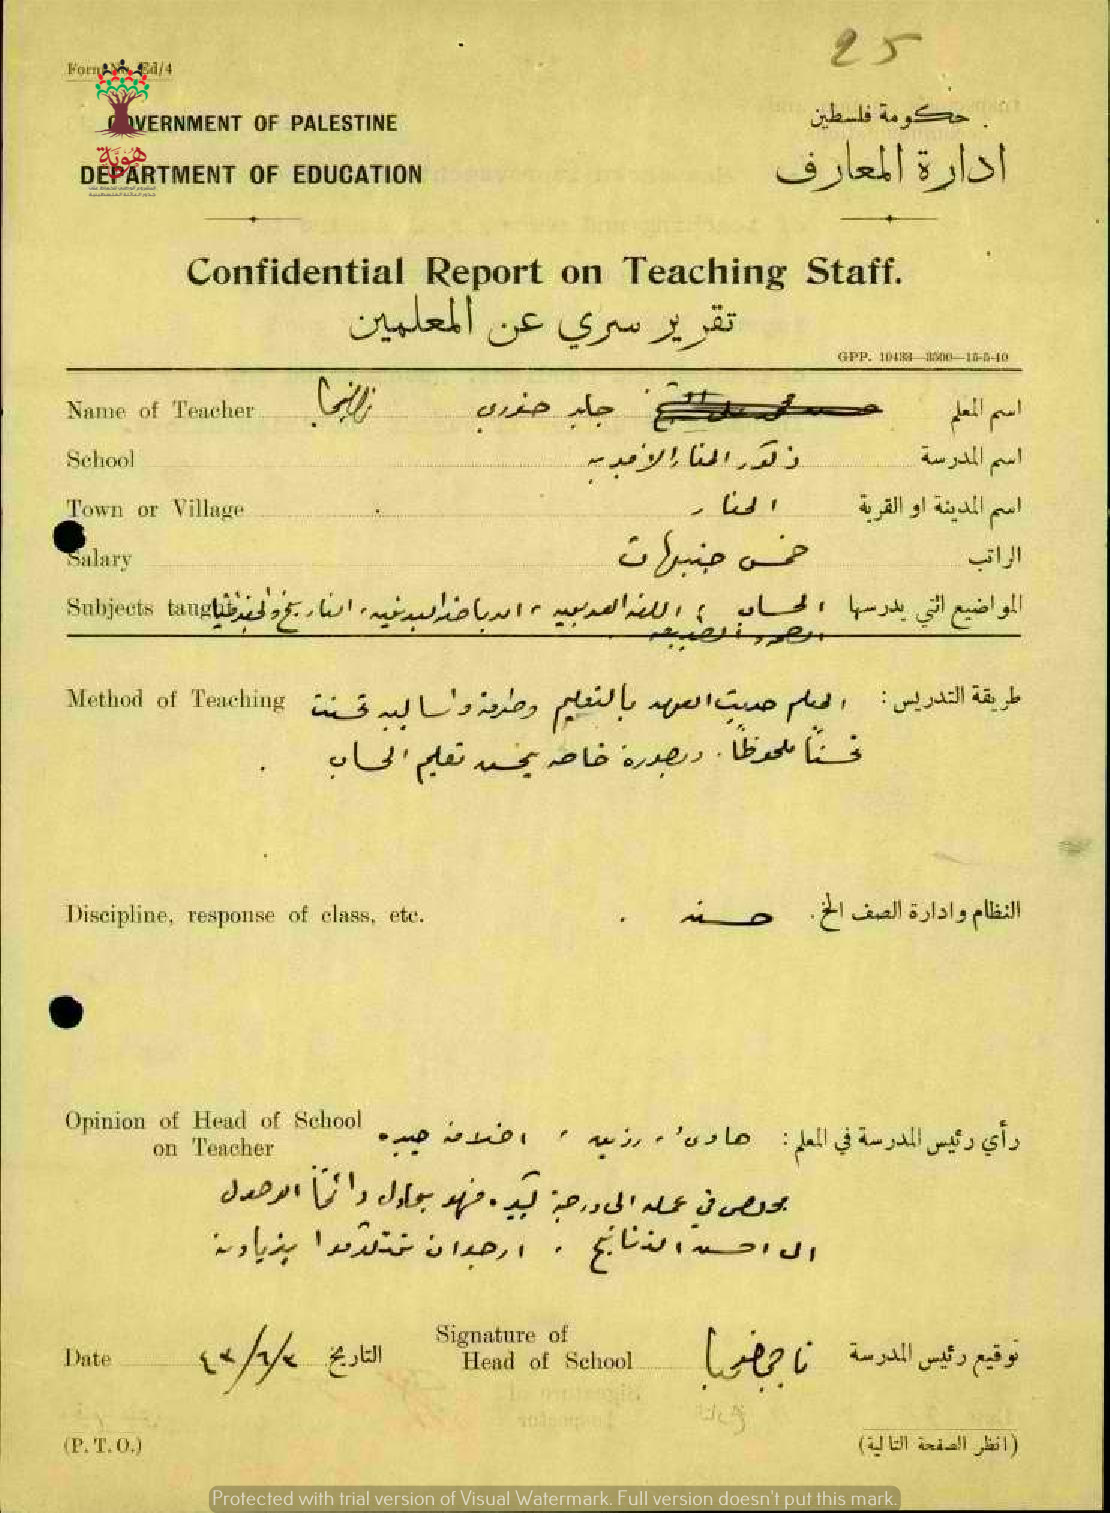 25
Form No. Ed/4
GOVERNMENT OF PALESTINE
حكومة فلسطين
DEPARTMENT OF EDUCATION
ادارة المعارف
هوية
Confidential Report on Teaching Staff.
تقرير سري عن المعلمين
GPP. 10433—3500—15-5-40
Name of Teacher جابر اسم المعلم
School ذكور المنار الاميرية اسم المدرسة
Town or Village المنار اسم المدينة او القرية
Salary خمس جنيهات الراتب
Subjects taught المواضيع التي يدرسها الحساب ؛ اللغة العربية ، الرياضة البدنية ، التاريخ والجغرافيا
Method of Teaching طريقة التدريس : المعلم حديث العهد بالتعليم وطرقه واساليبه تحسنت
تحسناً ملحوظاً . وبصورة خاصة يحسن تعليم الحساب .
Discipline, response of class, etc. النظام وادارة الصف الخ . حسنة .
Opinion of Head of School
on Teacher
رأي رئيس المدرسة في المعلم : هادىء ، رزين ، اخلاقه جيدة
مخلص في عمله الى درجة كبيرة فهو يحاول دائماً الوصول
الى احسن النتائج . ارجو ان تتكرموا بزيادته
Signature of
Head of School توقيع رئيس المدرسة
Date التاريخ ٣/٦/٤٣
(P. T. O.) (انظر الصفحة التالية)
Protected with trial version of Visual Watermark. Full version doesn't put this mark.